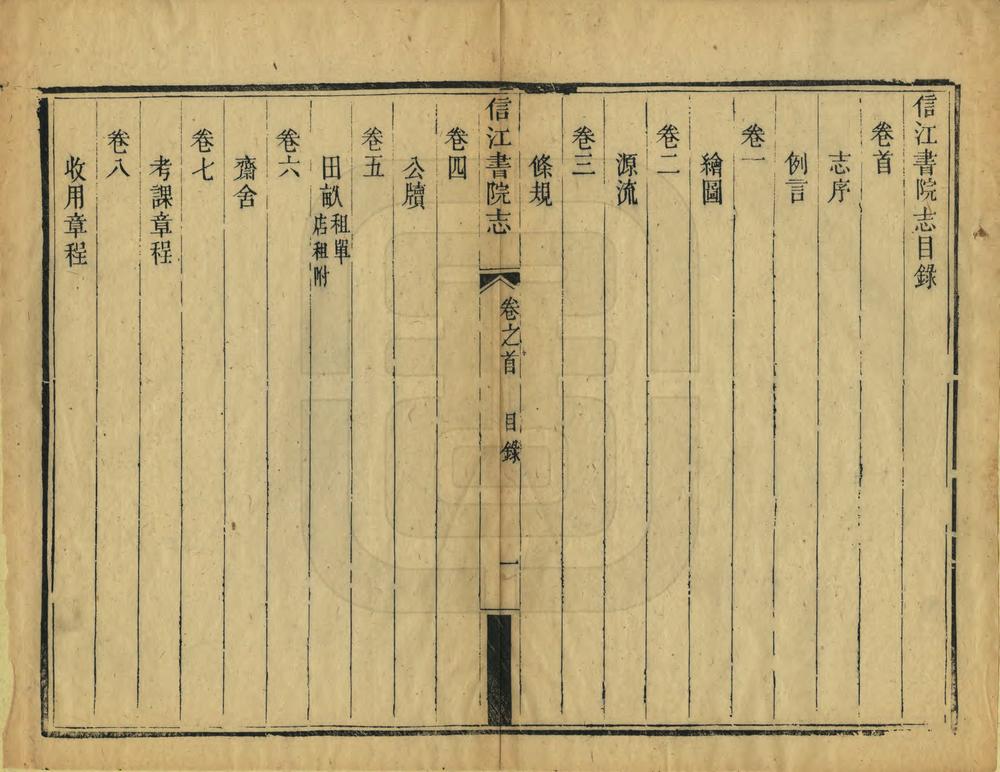 信江書院志目錄
卷首
志序
例言
卷一
繪圖
卷二
源流
卷三
條規
信江書院志 卷之首 目錄 一
卷四
公牘
卷五
田畝租單店租附
卷六
齋舍
卷七
考課章程
卷八
收用章程